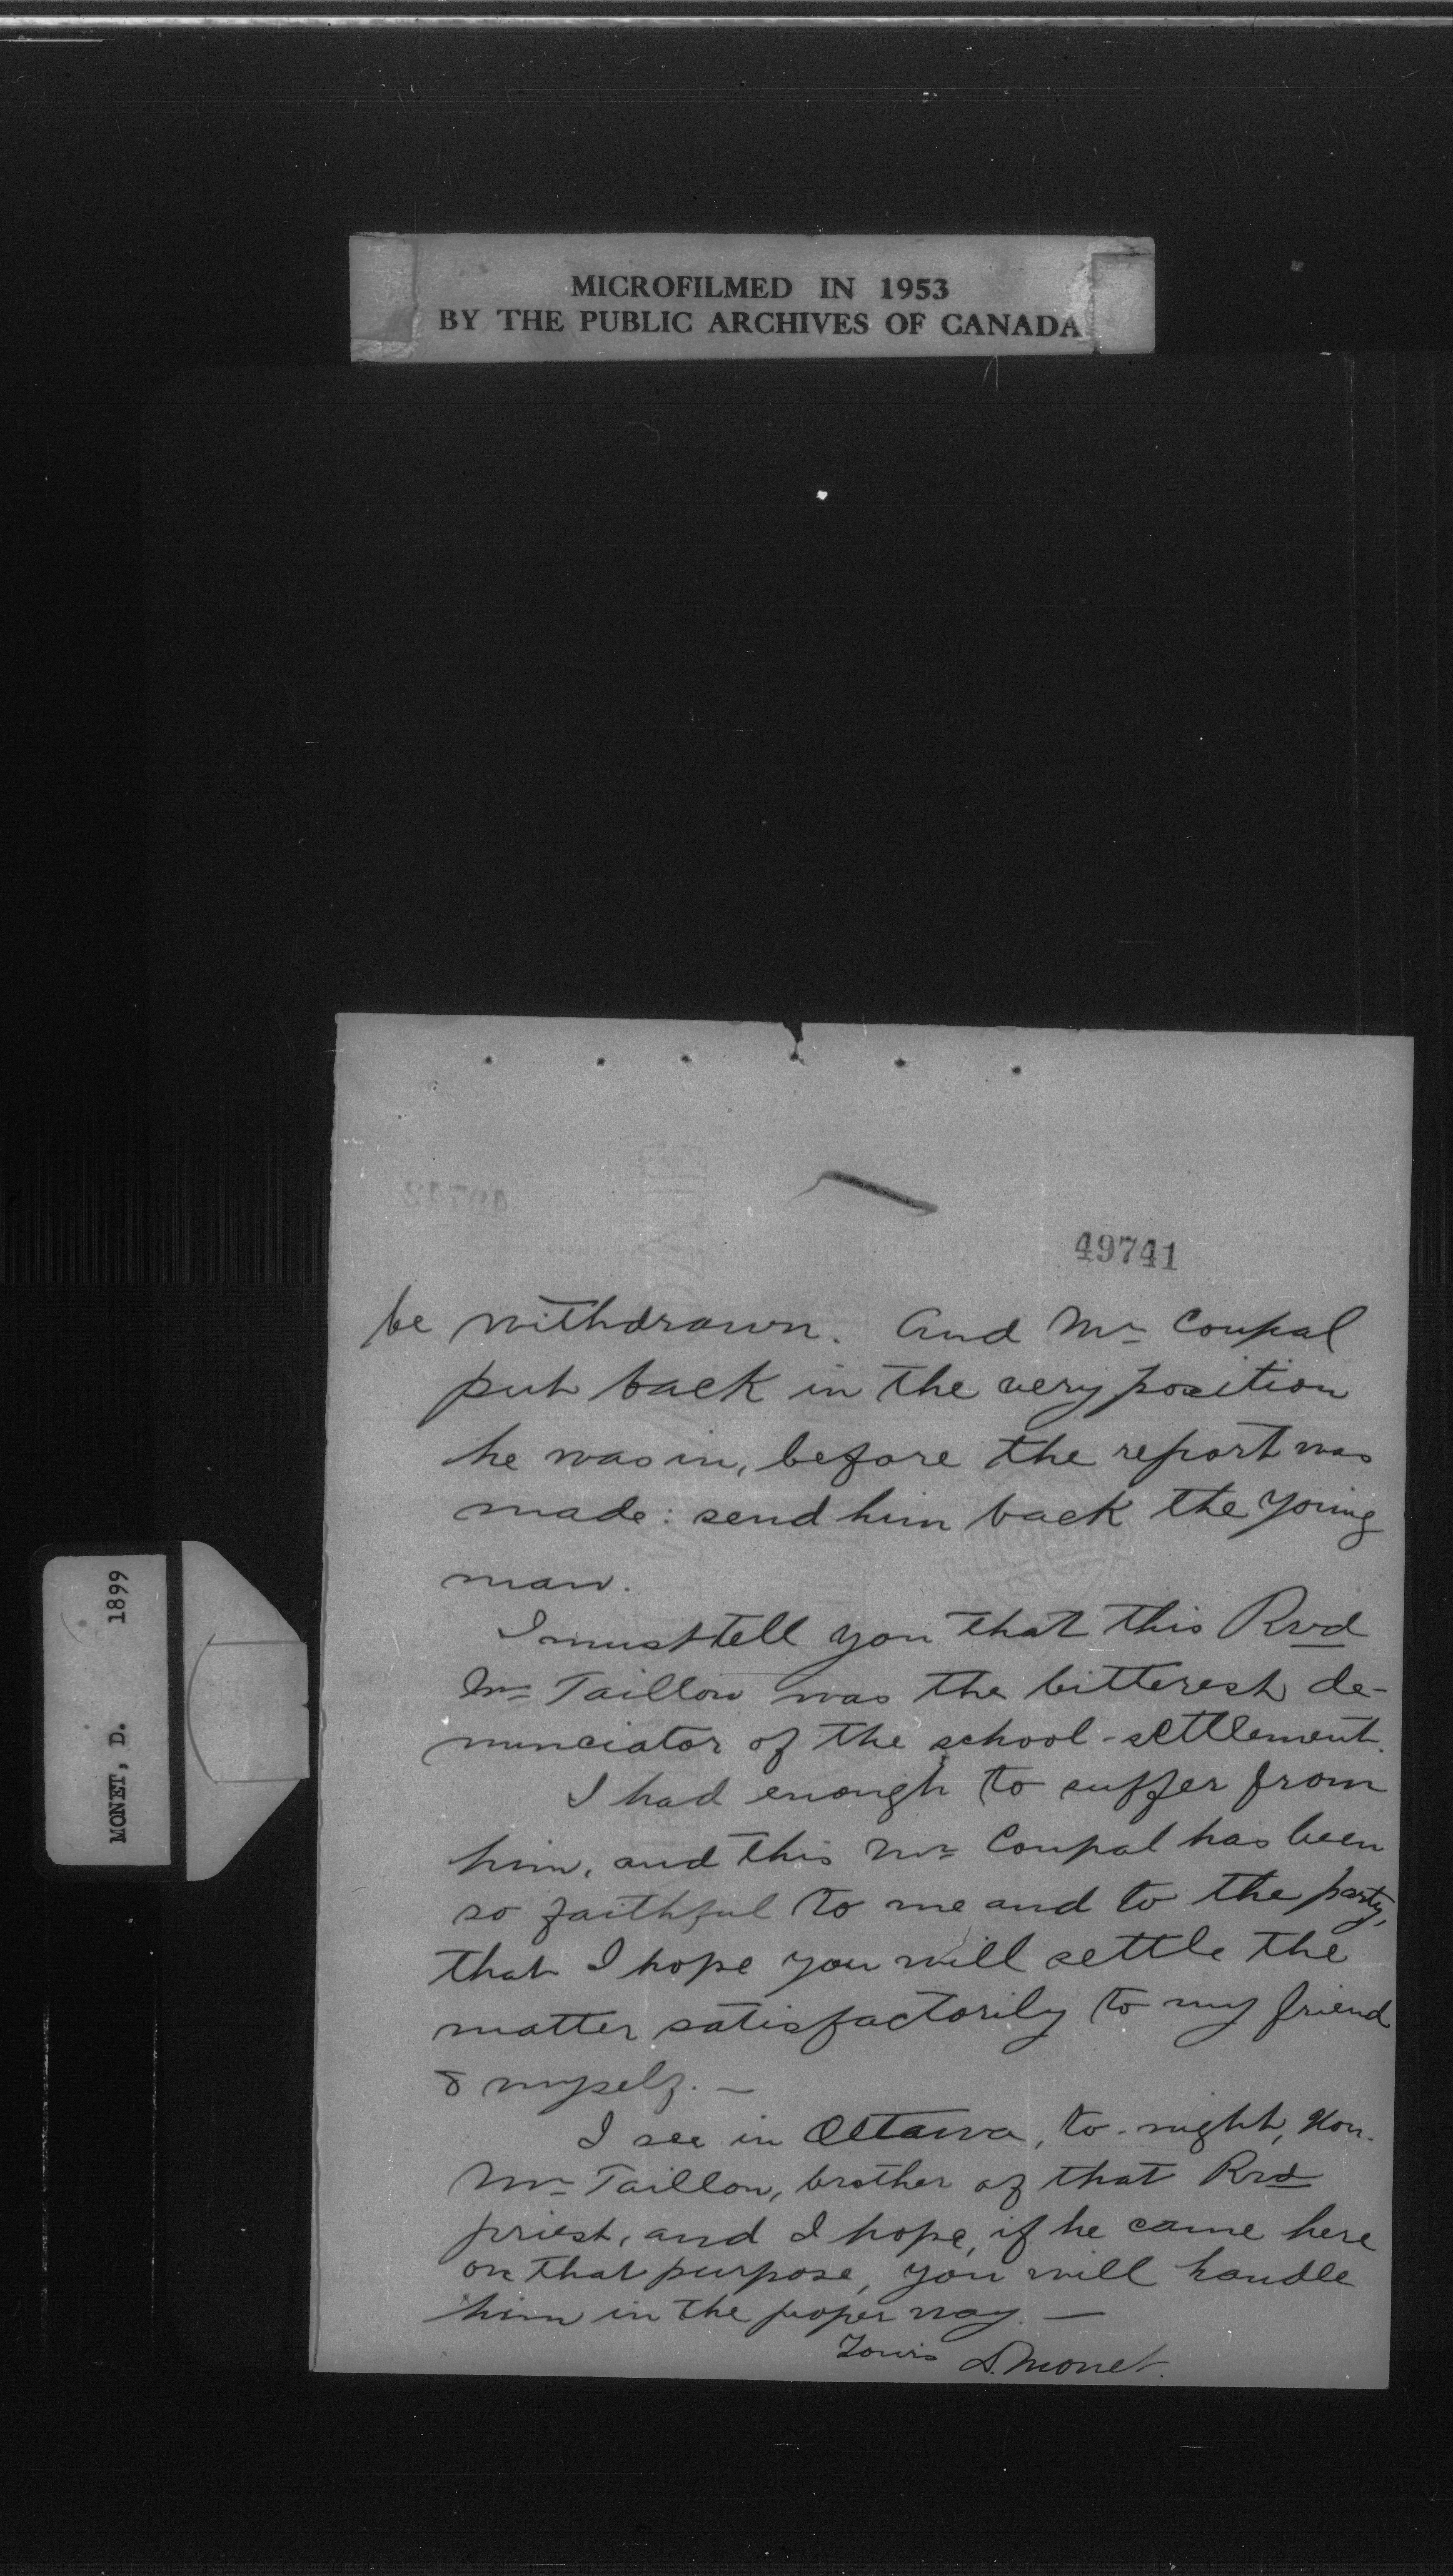 MICROFILMED IN 1953
BY THE PUBLIC ARCHIVES OF CANADA
49741
be withdrawn. And Mr Coupal
put back in the very position
he was in, before the report was
made: send him back the young
man.
I must tell you that this Rvd
Mr Taillon was the bitterest de-
nunciator of the school-settlement.
I had enough to suffer from
him, and this Mr Coupal has been
so faithful to me and to the party,
that I hope you will settle the
matter satisfactorily to my friend
& myself. —
I see in Ottawa, to-night, Hon.
Mr Taillon, brother of that Rvd
priest, and I hope, if he came here
on that purpose, you will handle
him in the proper way. —
Yours D. Monet.
MONET, D. 1899